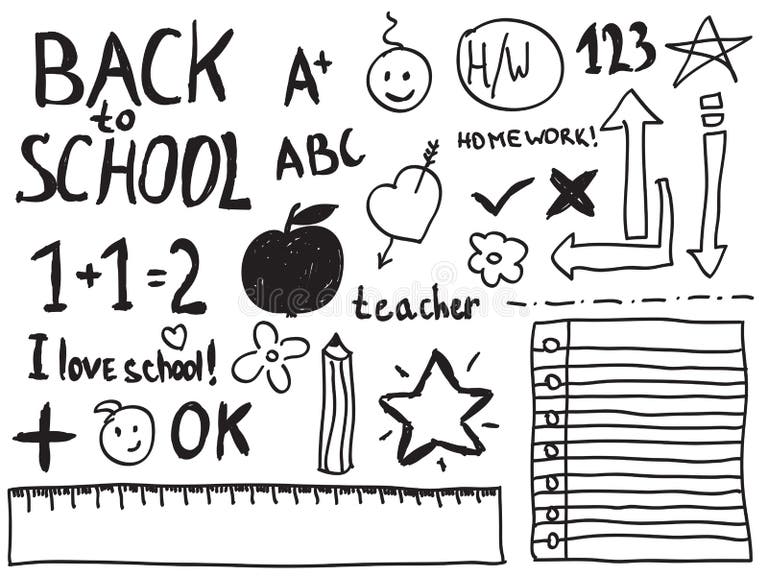 BACK
to
SCHOOL
A+
H/W
123
ABC
HOMEWORK!
1+1=2
teacher
I love school!
+
OK
dreamstime